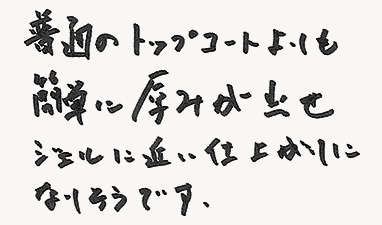 普通のトップコートよりも
簡単に厚みが出せ
ジェルに近い仕上がりに
なりそうです、